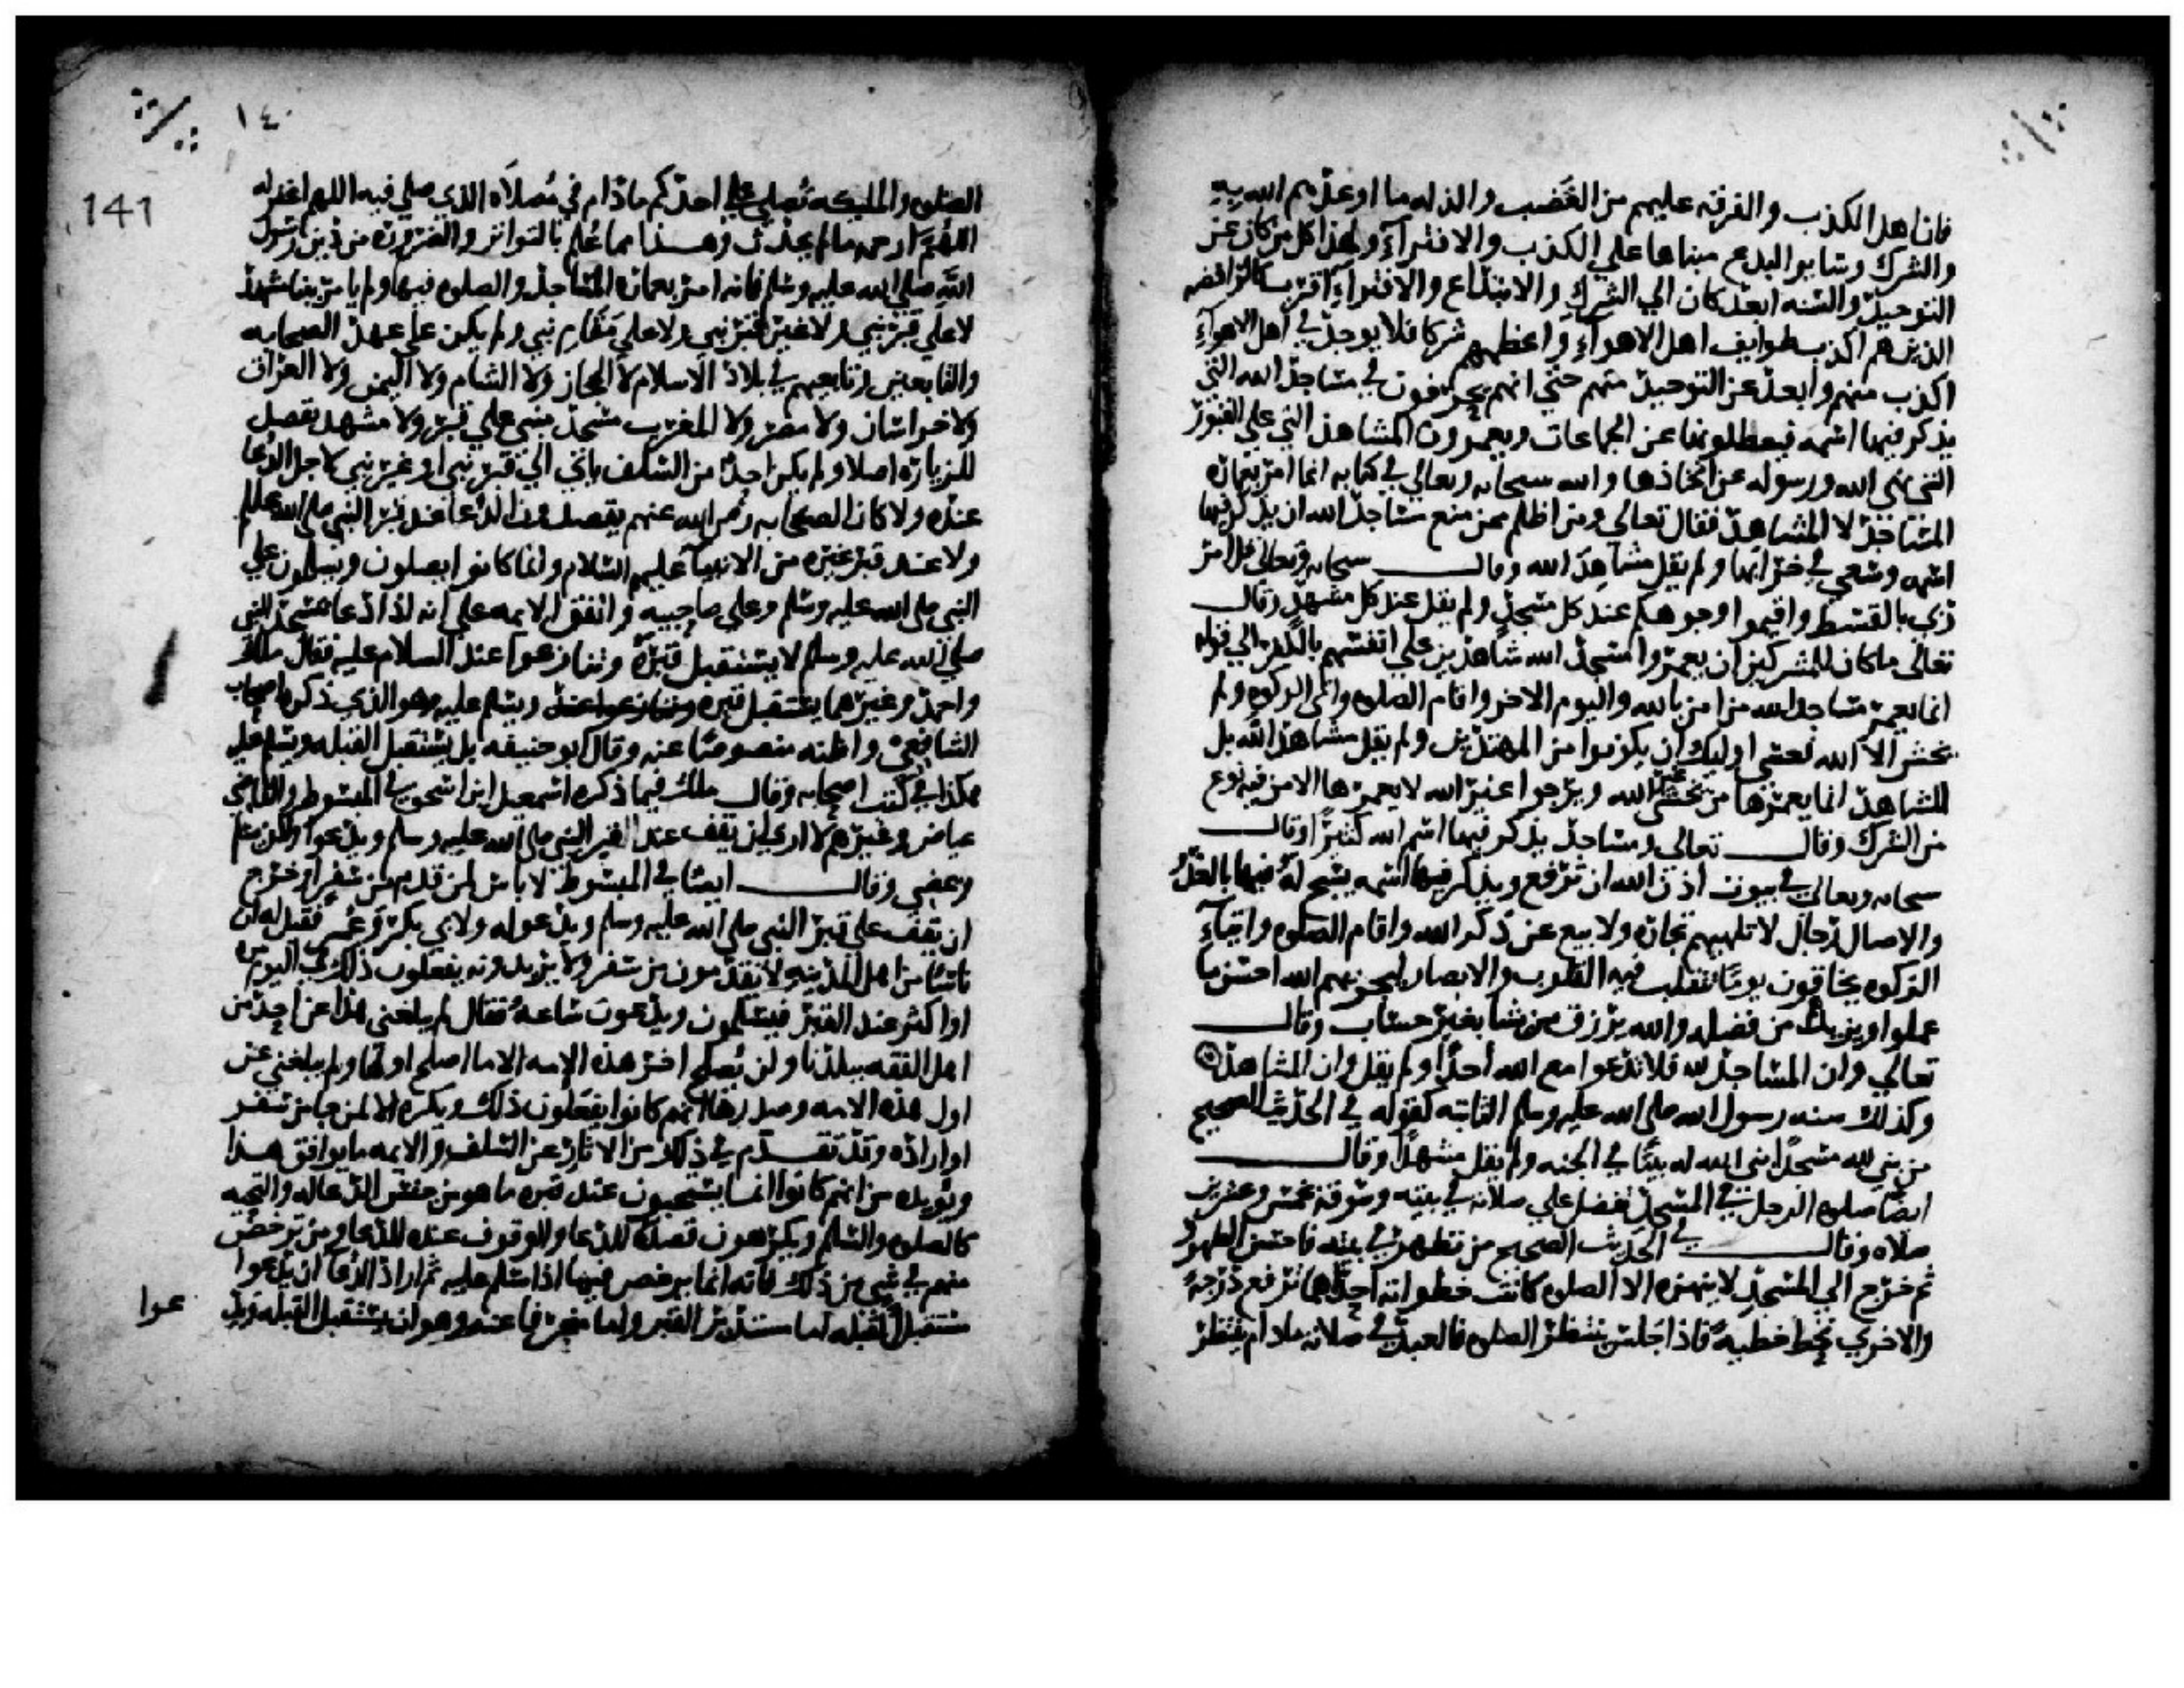 فان اهل الكذب والفرقه عليهم من الغضب والذله ما اوعدهم الله به
والشرك وساير البدع مبناها علي الكذب والافترآء ولهذا كل من كان عن
التوحيد والسنه ابعد كان الي الشرك والابتداع والافترآء اقرب كالرافضه
الذين هم اكذب طوايف اهل الاهوآء واعظهم شركا فلا يوجد في اهل الاهوآء
اكذب منهم وابعد عن التوحيد منهم حتي انهم يخرفون في مساجد الله التي
يذكر فيها اسمه فيعطلونها عن الجماعات ويعمرون المشاهد التي علي القبور
التي نهي الله ورسوله عن اتخاذها والله سبحانه وتعالي في كتابه انما امر بعمارة
المساجد لا المشاهد فقال تعالى ومن اظلم ممن منع مساجد الله ان يذكر فيها
اسمه وسعي في خرابها ولم يقل مشاهد الله وقال سبحانه وتعالى قل امر
ربي بالقسط واقيموا وجوهكم عند كل مسجد ولم يقل عند كل مشهد وقال
تعالى ما كان للمشركين ان يعمروا مسجد الله شاهدين علي انفسهم بالكفر الي قوله
انما يعمر مساجد الله من امن بالله واليوم الاخر واقام الصلوه واتى الزكوه ولم
يخش الا الله فعسى اوليك ان يكونوا من المهتدين ولم يقل مشاهد الله بل
المشاهد انما يعمرها من يخشى غير الله ويرجوا غير الله لا يعمرها الا من فيه نوع
من الشرك وقال تعالى ومساجد يذكر فيها اسم الله كثيرًا وقال
سبحانه وتعالي في بيوت اذن الله ان ترفع ويذكر فيها اسمه يسبح له فيها بالغدو
والاصال رجال لا تلهيهم تجارة ولا بيع عن ذكر الله واقام الصلوه وايتاء
الزكوه يخافون يومًا تتقلب فيه القلوب والابصار ليجزيهم الله احسن ما
عملوا ويزيدهم من فضله والله يرزق من يشا بغير حساب وقال
تعالي وان المساجد لله فلا تدعوا مع الله أحدًا ولم يقل وان المشاهد
وكذلك سنه رسول الله صلى الله عليه وسلم الثابته كقوله في الحديث الصحيح
من بني لله مسجدًا بني الله له بيتًا في الجنه ولم يقل مشهدًا وقال
ايضًا صلوه الرجل في المسجد تفضل علي صلاته في بيته وسوقه بخمس وعشرين
صلاه وقال في الحديث الصحيح من تطهر في بيته فاحسن الطهور
ثم خرج الي المسجد لا ينهزه الا الصلوه كانت خطواته احدها ترفع درجة
والاخري تحط خطيه فاذا جلس ينتظر الصلوه فالعبد في صلاته مادام ينتظر
١٤٠
141
الصلوه والمليكه تصلي علي احدكم مادام في مصلاه الذي صلي فيه اللهم اغفر له
اللهم ارحمه ما لم يحدث وهذا مما علم بالتواتر والضرورة من دين رسول
الله صلي الله عليه وسلم فانه امر بعمارة المساجد والصلوه فيها ولم يامر ببنا مشهد
لا علي قبر نبي ولا غير قبر نبي ولا علي مقام نبي ولم يكن علي عهد الصحابه
والتابعين وتابعيهم في بلاد الاسلام لا الحجاز ولا الشام ولا اليمن ولا العراق
ولا خراسان ولا مصر ولا المغرب مسجد مبني علي قبر ولا مشهد يقصد
للزيارة اصلا ولم يكن احد من السلف ياتي الي قبر نبي او غير نبي لاجل الدعا
عنده ولا كان الصحابه رضي الله عنهم يقصدون الدعا عند قبر النبي صلى الله عليه وسلم
ولا عند قبر غيره من الانبيآ عليهم السلام وانما كانوا يصلون ويسلمون علي
النبي صلى الله عليه وسلم وعلي صاحبيه واتفق الايمه على انه اذا دعا بمسجد النبي
صلى الله عليه وسلم لا يستقبل قبرة وتنازعوا عند السلام عليه فقال مالك
واحمد وغيرها يستقبل قبره وتنازعوا عند ويسلم عليه وهو الذي ذكره اصحاب
الشافعي واظنه منصوصًا عنه وقال ابو حنيفه بل يستقبل القبله ويسلم عليه
هكذا في كتب اصحابه وقال ملك فيما ذكره اسمعيل ابن اسحق في المبسوط والقاضي
عياض وغيرهم لا اري ان يقف عند القبر النبي صلى الله عليه وسلم ويدعوا ولكن يسلم
ويمضي وقال ايضًا في المبسوط لا باس لمن قدم من سفر او خرج
ان يقف على قبر النبي صلى الله عليه وسلم ويدعو له ولابي بكر وعمر فقيل له ان
ناسًا من اهل المدينه لا يقدمون من سفر ولا يريدونه يفعلون ذلك في اليوم مرة
او اكثر عند القبر فيسلمون ويدعون ساعة فقال لم يبلغني هذا عن احد من
اهل الفقه ببلدنا ولن يصلح اخر هذه الامه الا ما اصلح اولها ولم يبلغني عن
اول هذه الامه وصدرها انهم كانوا يفعلون ذلك ويكره الا لمن جا من سفر
او اراده وقد تقدم في ذلك من الاثار عن السلف والايمه ما يوافق هذا
ويويده من انهم كانوا انما يستحبون عند قبره ما هو من جنس الدعا له والتحيه
كالصلوه والسلام ويكرهون قصده للدعا والوقوف عنده للدعا ومن ترخص
منهم في شي من ذلك فانه انما يرخص فيما اذا سلم عليه ثم اراد الدعا ان يدعوا
مستقبل القبله اما مستدبر القبر واما منحرفا عنه وهو ان يستقبل القبله ويد
عوا